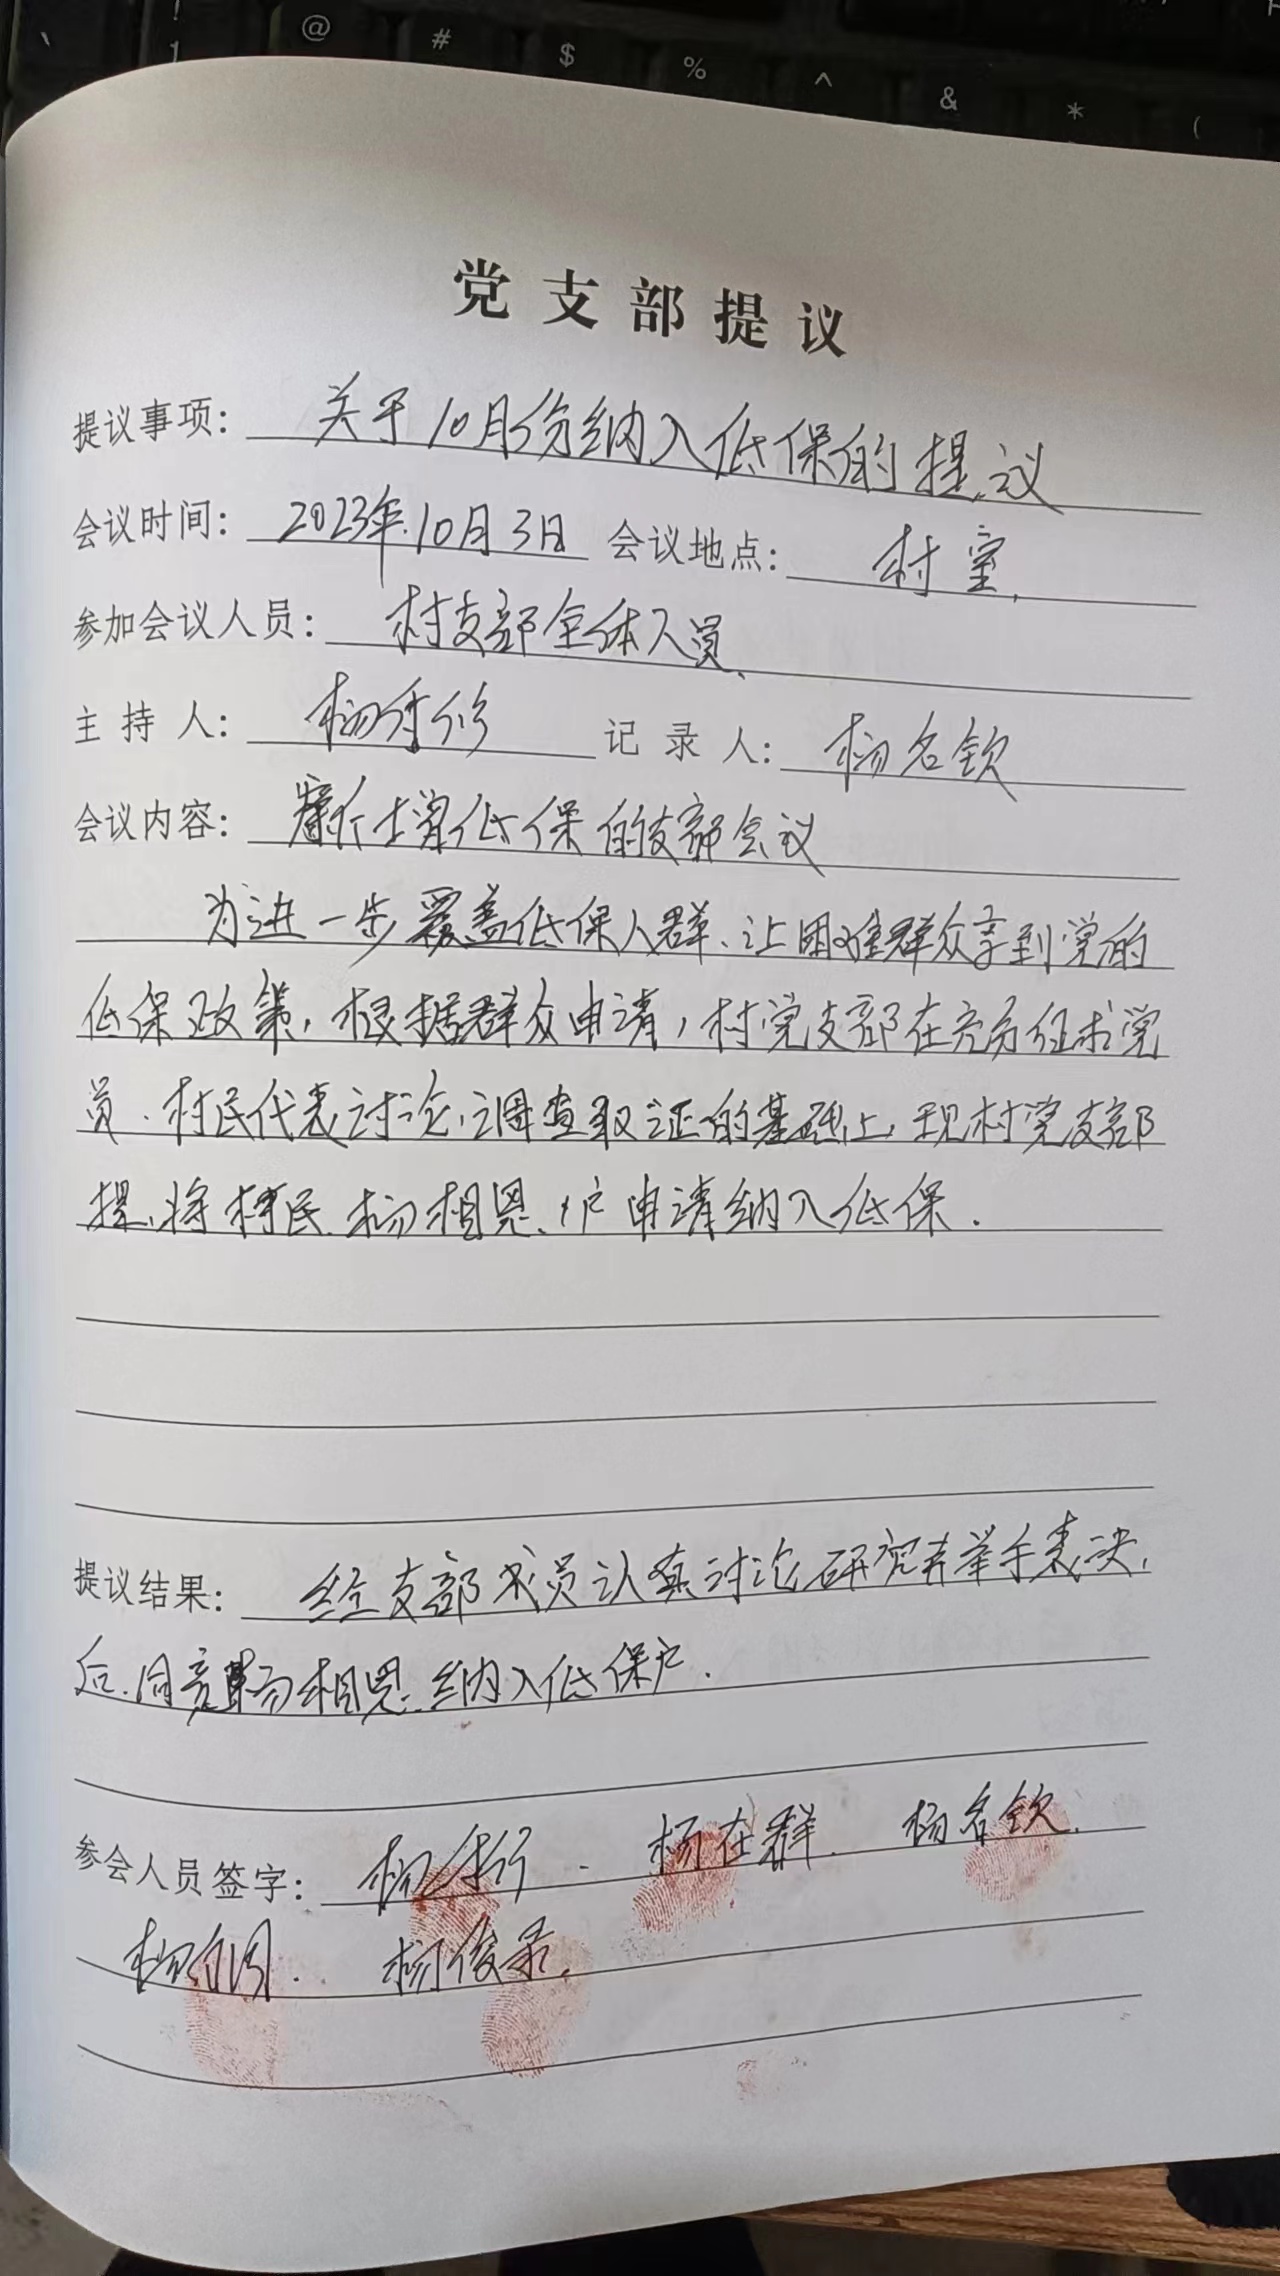 党支部提议
提议事项: 关于10月份纳入低保的提议
会议时间: 2023年.10月3日 会议地点: 村室.
参加会议人员: 村支部全体人员.
主持人: 杨 记录人: 杨名钦
会议内容: 增低保的支部会议
为进一步覆盖低保人群、让困难群众享到党的
低保政策, 根据群众申请, 村党支部在充分征求党
员.村民代表讨论,调查取证的基础上,现村党支部
提,将村民.杨相恩、1户申请纳入低保.
提议结果: 经支部成员认真讨论研究并举手表决,
后.同意杨相恩.纳入低保户.
参会人员签字: 杨 . 杨在群. 杨名钦.
杨 . 杨俊录.